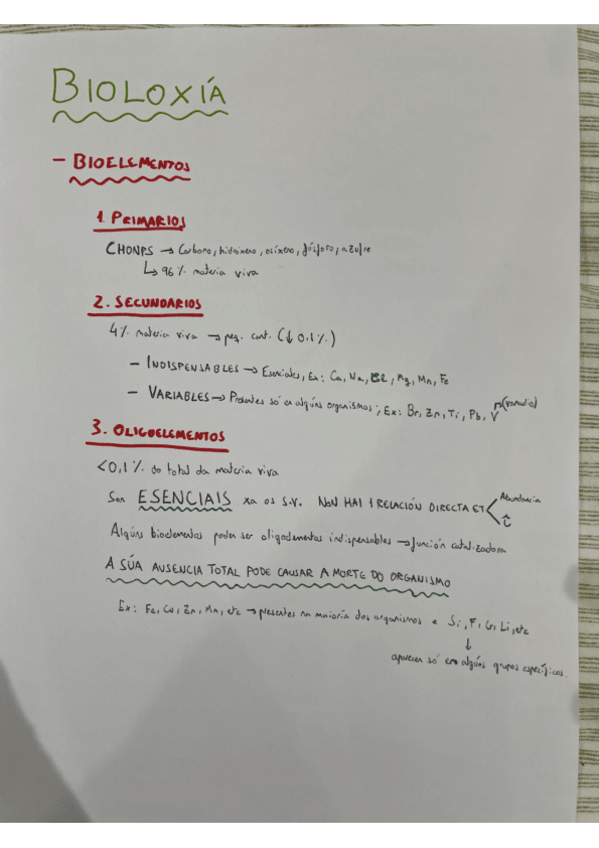 BIOLOXÍA
- BIOELEMENTOS
1. PRIMARIOS
CHONPS → Carbono, hidróxeno, osíxeno, fósforo, azufre
↳ 96% materia viva
2. SECUNDARIOS
4% materia viva → peq. cant. (↓0,1%)
- INDISPENSABLES → Esenciales, Ex: Ca, Na, Cl, Mg, Mn, Fe
- VARIABLES → Presentes só en algúns organismos; Ex: Br, Zn, Ti, Pb, V → (vanadio)
3. OLIGOELEMENTOS
<0,1% do total da materia viva
Son ESENCIAIS xa os s.v. NON HAI 1 RELACIÓN DIRECTA
Abundancia
Algúns bioelementos poden ser oligoelementos indispensables → función catalizadora
A SÚA AUSENCIA TOTAL PODE CAUSAR A MORTE DO ORGANISMO
Ex: Fe, Cu, Zn, Mn, etc → presentes na maioría dos organismos e Si, F, Cr, Li, etc
↓
aparecen só en algúns grupos específicos.